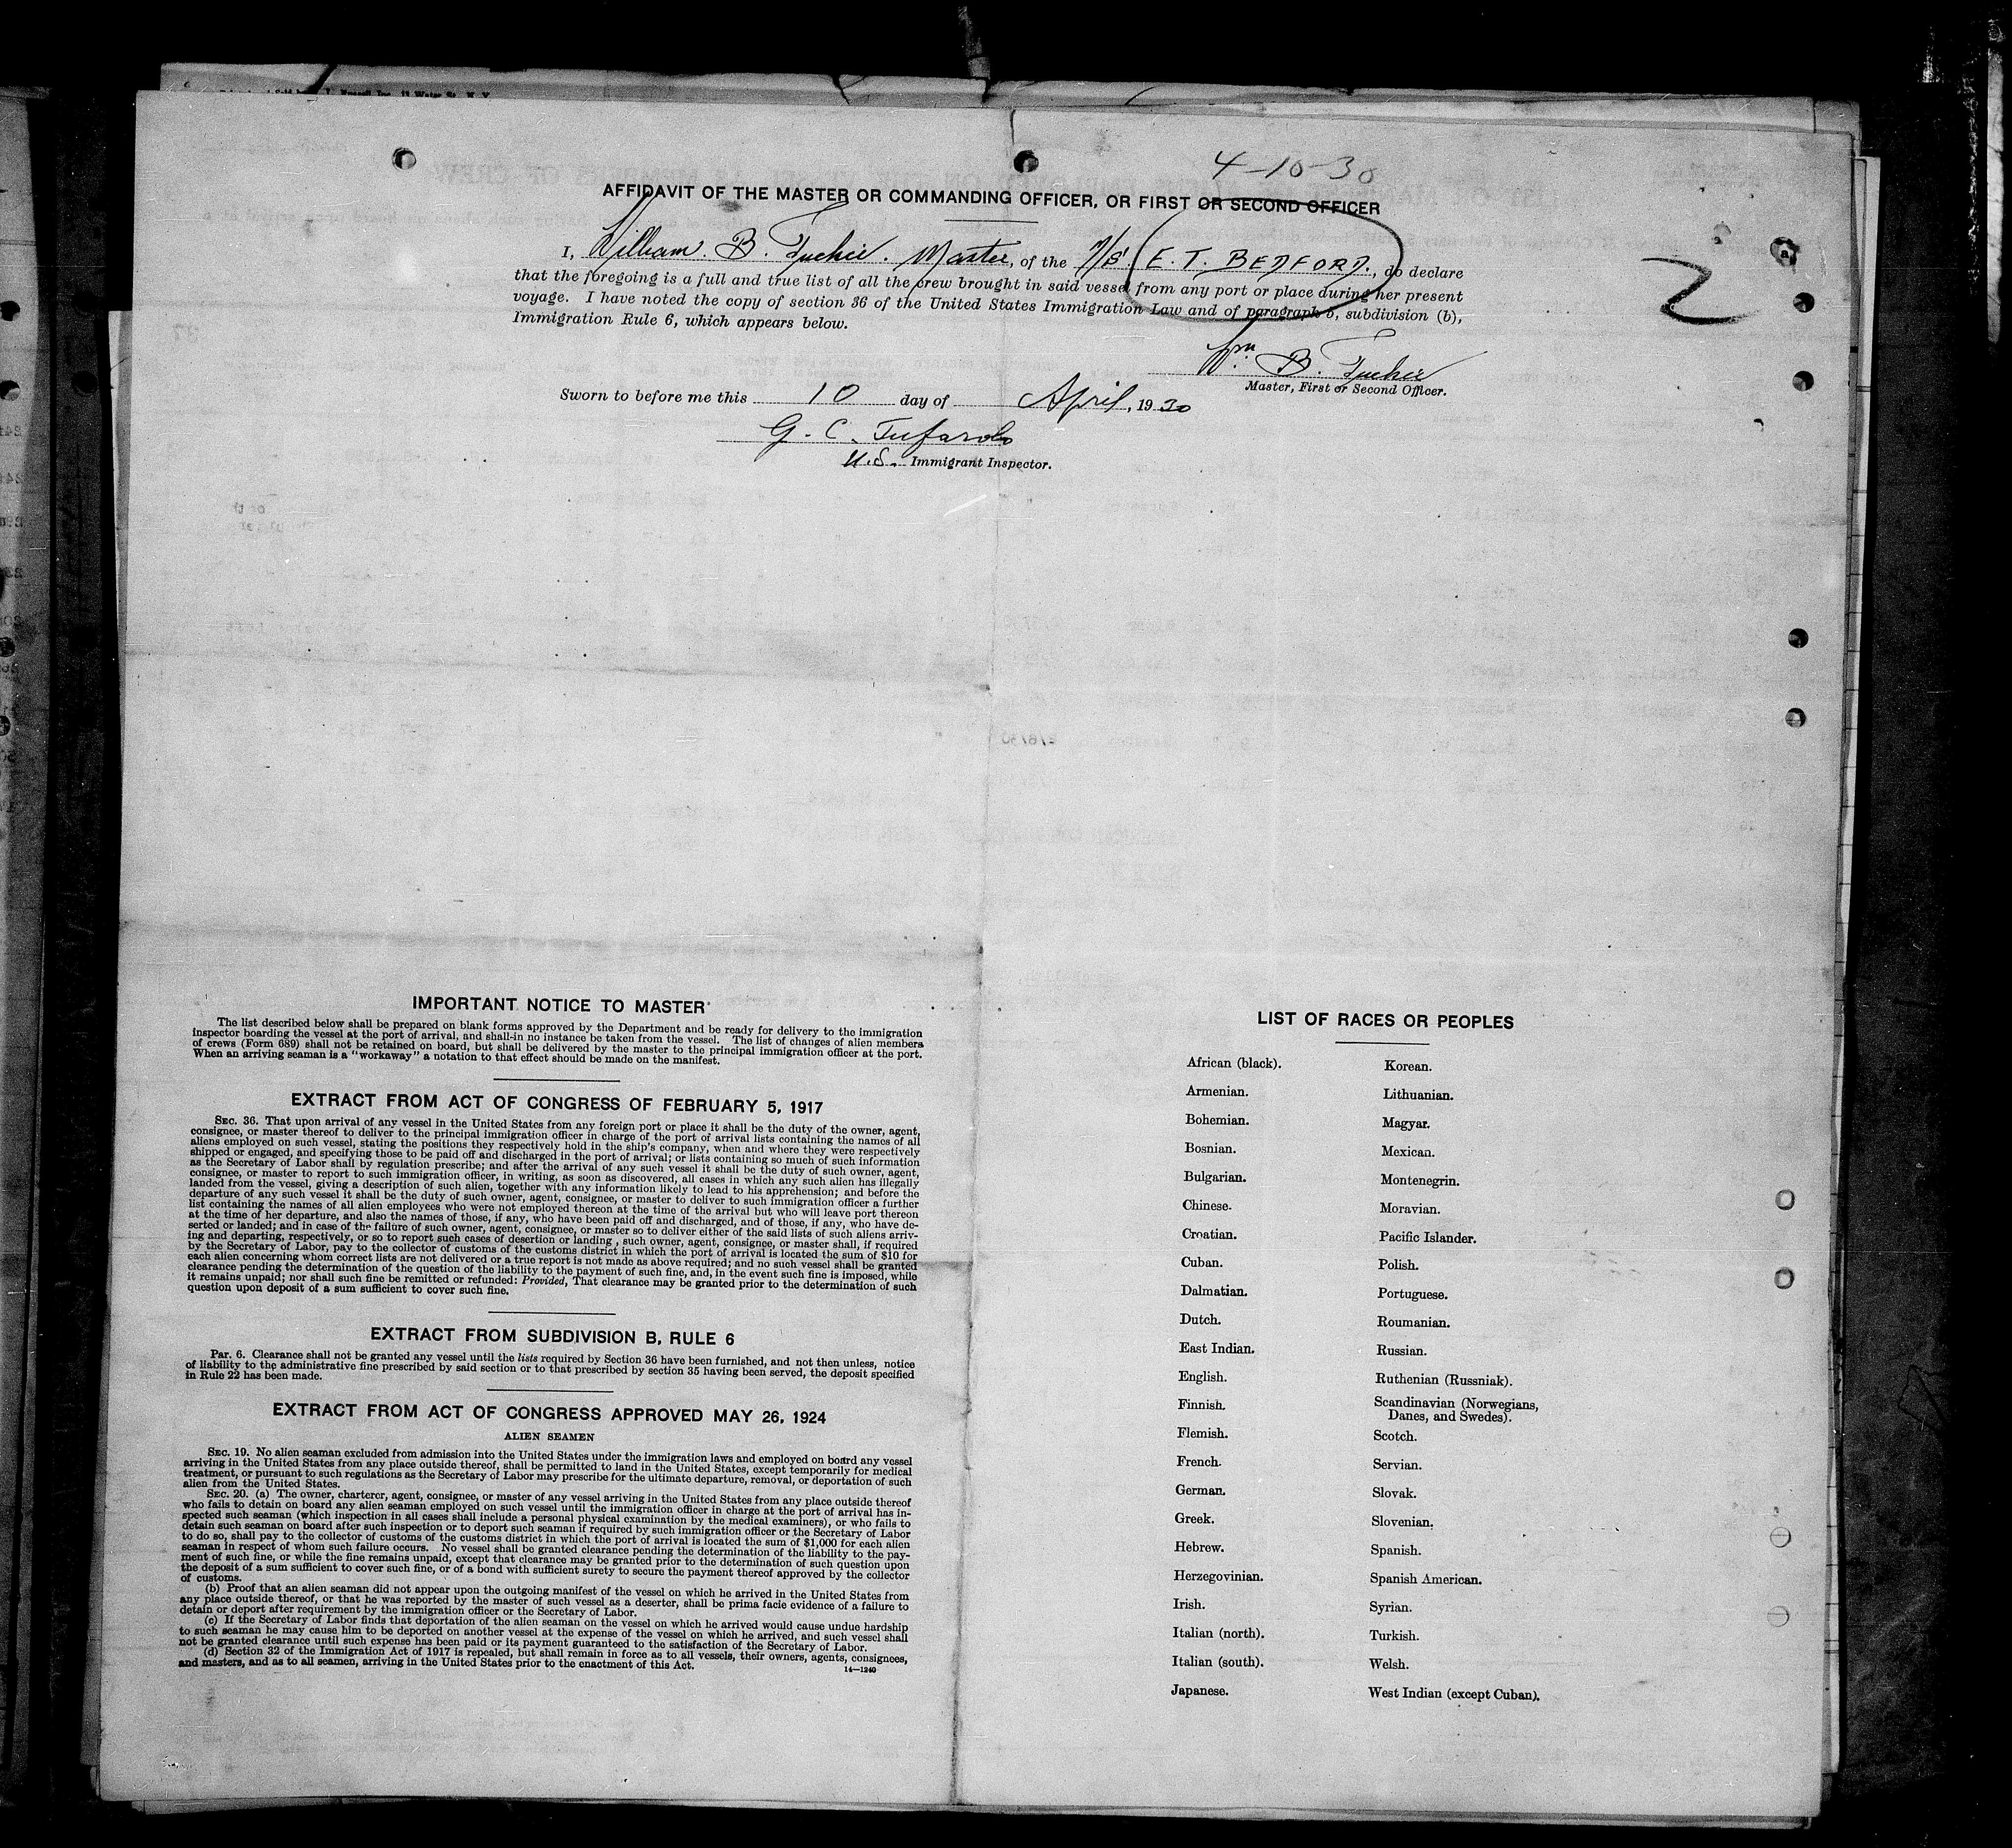 4-10-30
AFFIDAVIT OF THE MASTER OR COMMANDING OFFICER, OR FIRST OR SECOND OFFICER
I, William. B. Tucker. Master, of the M/S E. T. BEDFORD., do declare
that the foregoing is a full and true list of all the crew brought in said vessel from any port or place during her present
voyage. I have noted the copy of section 36 of the United States Immigration Law and of paragraph 6, subdivision (b),
Immigration Rule 6, which appears below.
2
Wm. B. Tucker
Master, First or Second Officer.
Sworn to before me this 10 day of April, 1930
G. C. Tufarolo
U.S. Immigrant Inspector.
IMPORTANT NOTICE TO MASTER
The list described below shall be prepared on blank forms approved by the Department and be ready for delivery to the immigration
inspector boarding the vessel at the port of arrival, and shall in no instance be taken from the vessel. The list of changes of alien members
of crews (Form 689) shall not be retained on board, but shall be delivered by the master to the principal immigration officer at the port.
When an arriving seaman is a "workaway" a notation to that effect should be made on the manifest.
EXTRACT FROM ACT OF CONGRESS OF FEBRUARY 5, 1917
SEC. 36. That upon arrival of any vessel in the United States from any foreign port or place it shall be the duty of the owner, agent,
consignee, or master thereof to deliver to the principal immigration officer in charge of the port of arrival lists containing the names of all
aliens employed on such vessel, stating the positions they respectively hold in the ship's company, when and where they were respectively
shipped or engaged, and specifying those to be paid off and discharged in the port of arrival; or lists containing so much of such information
as the Secretary of Labor shall by regulation prescribe; and after the arrival of any such vessel it shall be the duty of such owner, agent,
consignee, or master to report to such immigration officer, in writing, as soon as discovered, all cases in which any such alien has illegally
landed from the vessel, giving a description of such alien, together with any information likely to lead to his apprehension; and before the
departure of any such vessel it shall be the duty of such owner, agent, consignee, or master to deliver to such immigration officer a further
list containing the names of all alien employees who were not employed thereon at the time of the arrival but who will leave port thereon
at the time of her departure, and also the names of those, if any, who have been paid off and discharged, and of those, if any, who have de-
serted or landed; and in case of the failure of such owner, agent, consignee, or master so to deliver either of the said lists of such aliens arriv-
ing and departing, respectively, or so to report such cases of desertion or landing , such owner, agent, consignee, or master shall, if required
by the Secretary of Labor, pay to the collector of customs of the customs district in which the port of arrival is located the sum of $10 for
each alien concerning whom correct lists are not delivered or a true report is not made as above required; and no such vessel shall be granted
clearance pending the determination of the question of the liability to the payment of such fine, and, in the event such fine is imposed, while
it remains unpaid; nor shall such fine be remitted or refunded: Provided, That clearance may be granted prior to the determination of such
question upon deposit of a sum sufficient to cover such fine.
EXTRACT FROM SUBDIVISION B, RULE 6
Par. 6. Clearance shall not be granted any vessel until the lists required by Section 36 have been furnished, and not then unless, notice
of liability to the administrative fine prescribed by said section or to that prescribed by section 35 having been served, the deposit specified
in Rule 22 has been made.
EXTRACT FROM ACT OF CONGRESS APPROVED MAY 26, 1924
ALIEN SEAMEN
SEC. 19. No alien seaman excluded from admission into the United States under the immigration laws and employed on board any vessel
arriving in the United States from any place outside thereof, shall be permitted to land in the United States, except temporarily for medical
treatment, or pursuant to such regulations as the Secretary of Labor may prescribe for the ultimate departure, removal, or deportation of such
alien from the United States.
SEC. 20. (a) The owner, charterer, agent, consignee, or master of any vessel arriving in the United States from any place outside thereof
who fails to detain on board any alien seaman employed on such vessel until the immigration officer in charge at the port of arrival has in-
spected such seaman (which inspection in all cases shall include a personal physical examination by the medical examiners), or who fails to
detain such seaman on board after such inspection or to deport such seaman if required by such immigration officer or the Secretary of Labor
to do so, shall pay to the collector of customs of the customs district in which the port of arrival is located the sum of $1,000 for each alien
seaman in respect of whom such failure occurs. No vessel shall be granted clearance pending the determination of the liability to the pay-
ment of such fine, or while the fine remains unpaid, except that clearance may be granted prior to the determination of such question upon
the deposit of a sum sufficient to cover such fine, or of a bond with sufficient surety to secure the payment thereof approved by the collector
of customs.
(b) Proof that an alien seaman did not appear upon the outgoing manifest of the vessel on which he arrived in the United States from
any place outside thereof, or that he was reported by the master of such vessel as a deserter, shall be prima facie evidence of a failure to
detain or deport after requirement by the immigration officer or the Secretary of Labor.
(c) If the Secretary of Labor finds that deportation of the alien seaman on the vessel on which he arrived would cause undue hardship
to such seaman he may cause him to be deported on another vessel at the expense of the vessel on which he arrived, and such vessel shall
not be granted clearance until such expense has been paid or its payment guaranteed to the satisfaction of the Secretary of Labor.
(d) Section 32 of the Immigration Act of 1917 is repealed, but shall remain in force as to all vessels, their owners, agents, consignees,
and masters, and as to all seamen, arriving in the United States prior to the enactment of this Act.
14—1240
LIST OF RACES OR PEOPLES
African (black).
Armenian.
Bohemian.
Bosnian.
Bulgarian.
Chinese.
Croatian.
Cuban.
Dalmatian.
Dutch.
East Indian.
English.
Finnish.
Flemish.
French.
German.
Greek.
Hebrew.
Herzegovinian.
Irish.
Italian (north).
Italian (south).
Japanese.
Korean.
Lithuanian.
Magyar.
Mexican.
Montenegrin.
Moravian.
Pacific Islander.
Polish.
Portuguese.
Roumanian.
Russian.
Ruthenian (Russniak).
Scandinavian (Norwegians,
Danes, and Swedes).
Scotch.
Servian.
Slovak.
Slovenian.
Spanish.
Spanish American.
Syrian.
Turkish.
Welsh.
West Indian (except Cuban).